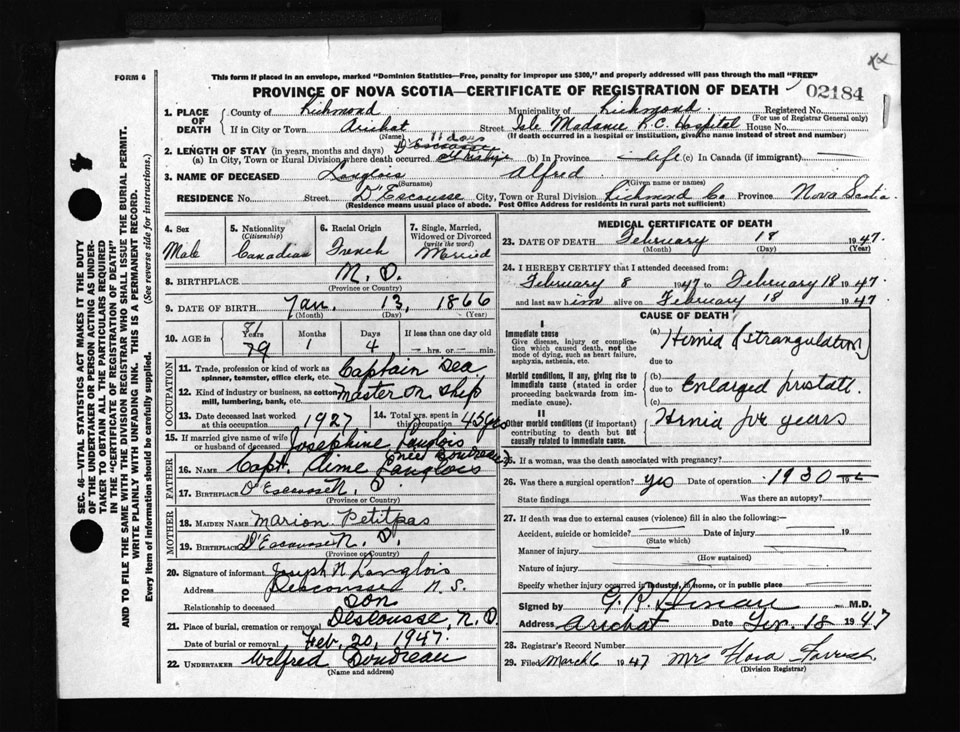 xx
FORM 6
This form if placed in an envelope, marked "Dominion Statistics—Free, penalty for improper use $300," and properly addressed will pass through the mail "FREE"
PROVINCE OF NOVA SCOTIA—CERTIFICATE OF REGISTRATION OF DEATH
02184
1. PLACE OF DEATH
County of Richmond Municipality of Richmond Registered No.
(For use of Registrar General only)
If in City or Town Arichat Street Isle Madame R.C. Hospital House No.
(Name) (If death occurred in a hospital or institution, give the name instead of street and number)
11 days
2. LENGTH OF STAY (in years, months and days) D'Escousse
(a) In City, Town or Rural Division where death occurred (b) In Province life (c) In Canada (if immigrant) —
3. NAME OF DECEASED Langlois Alfred
(Surname) (Given name or names)
RESIDENCE No. Street D'Escousse City, Town or Rural Division Richmond Co Province Nova Scotia
(Residence means usual place of abode. Post Office Address for residents in rural parts not sufficient)
4. Sex
Male
5. Nationality
(Citizenship)
Canadian
6. Racial Origin
French
7. Single, Married, Widowed or Divorced
(write the word)
Married
8. BIRTHPLACE N. S.
(Province or Country)
9. DATE OF BIRTH Jan. 13, 1866
(Month) (Day) (Year)
10. AGE in Years Months Days If less than one day old
81
79 1 4 — hrs. or — min.
OCCUPATION
11. Trade, profession or kind of work as spinner, teamster, office clerk, etc. Captain Sea
12. Kind of industry or business, as cotton mill, lumbering, bank, etc. Master on Ship
13. Date deceased last worked at this occupation 1927
14. Total yrs. spent in this occupation 45 yrs
15. If married give name of wife or husband of deceased Josephine Langlois
(nee Boudreau)
FATHER
16. NAME Capt. Aime Langlois
17. BIRTHPLACE D'Escousse N. S.
(Province or Country)
MOTHER
18. MAIDEN NAME Marion Petitpas
19. BIRTHPLACE D'Escousse N. S.
(Province or Country)
20. Signature of informant Joseph N Langlois
Address Descousse N. S.
Relationship to deceased Son
21. Place of burial, cremation or removal Descousse, N. S.
Date of burial or removal Feb. 20, 1947.
22. UNDERTAKER Wilfred Boudreau
(Name and address)
MEDICAL CERTIFICATE OF DEATH
23. DATE OF DEATH February 18 1947.
(Month) (Day) (Year)
24. I HEREBY CERTIFY that I attended deceased from:
February 8 1947 to February 18 1947
and last saw him alive on February 18 1947
CAUSE OF DEATH
I
Immediate cause
Give disease, injury or complication which caused death, not the mode of dying, such as heart failure, asphyxia, asthenia, etc.
(a) Hernia (Strangulation)
due to
Morbid conditions, if any, giving rise to immediate cause (stated in order proceeding backwards from immediate cause).
(b) Enlarged prostate.
due to
(c)
II
Other morbid conditions (if important) contributing to death but not causally related to immediate cause.
Hernia for years
25. If a woman, was the death associated with pregnancy?
26. Was there a surgical operation? yes Date of operation 1930
State findings Was there an autopsy?
27. If death was due to external causes (violence) fill in also the following:—
Accident, suicide or homicide? Date of injury 19
(State which)
Manner of injury
(How sustained)
Nature of injury
Specify whether injury occurred in industry, in home, or in public place
Signed by M.D.
Address Arichat Date Feb. 18 1947
28. Registrar's Record Number
29. Filed March 6 1947 Mr Flora
(Division Registrar)
SEC. 46—VITAL STATISTICS ACT MAKES IT THE DUTY
OF THE UNDERTAKER OR PERSON ACTING AS UNDER-
TAKER TO OBTAIN ALL THE PARTICULARS REQUIRED
IN THE "CERTIFICATE OF REGISTRATION OF DEATH"
AND TO FILE THE SAME WITH THE DIVISION REGISTRAR WHO SHALL ISSUE THE BURIAL PERMIT.
WRITE PLAINLY WITH UNFADING INK. THIS IS A PERMANENT RECORD.
Every item of information should be carefully supplied. (See reverse side for instructions.)
4